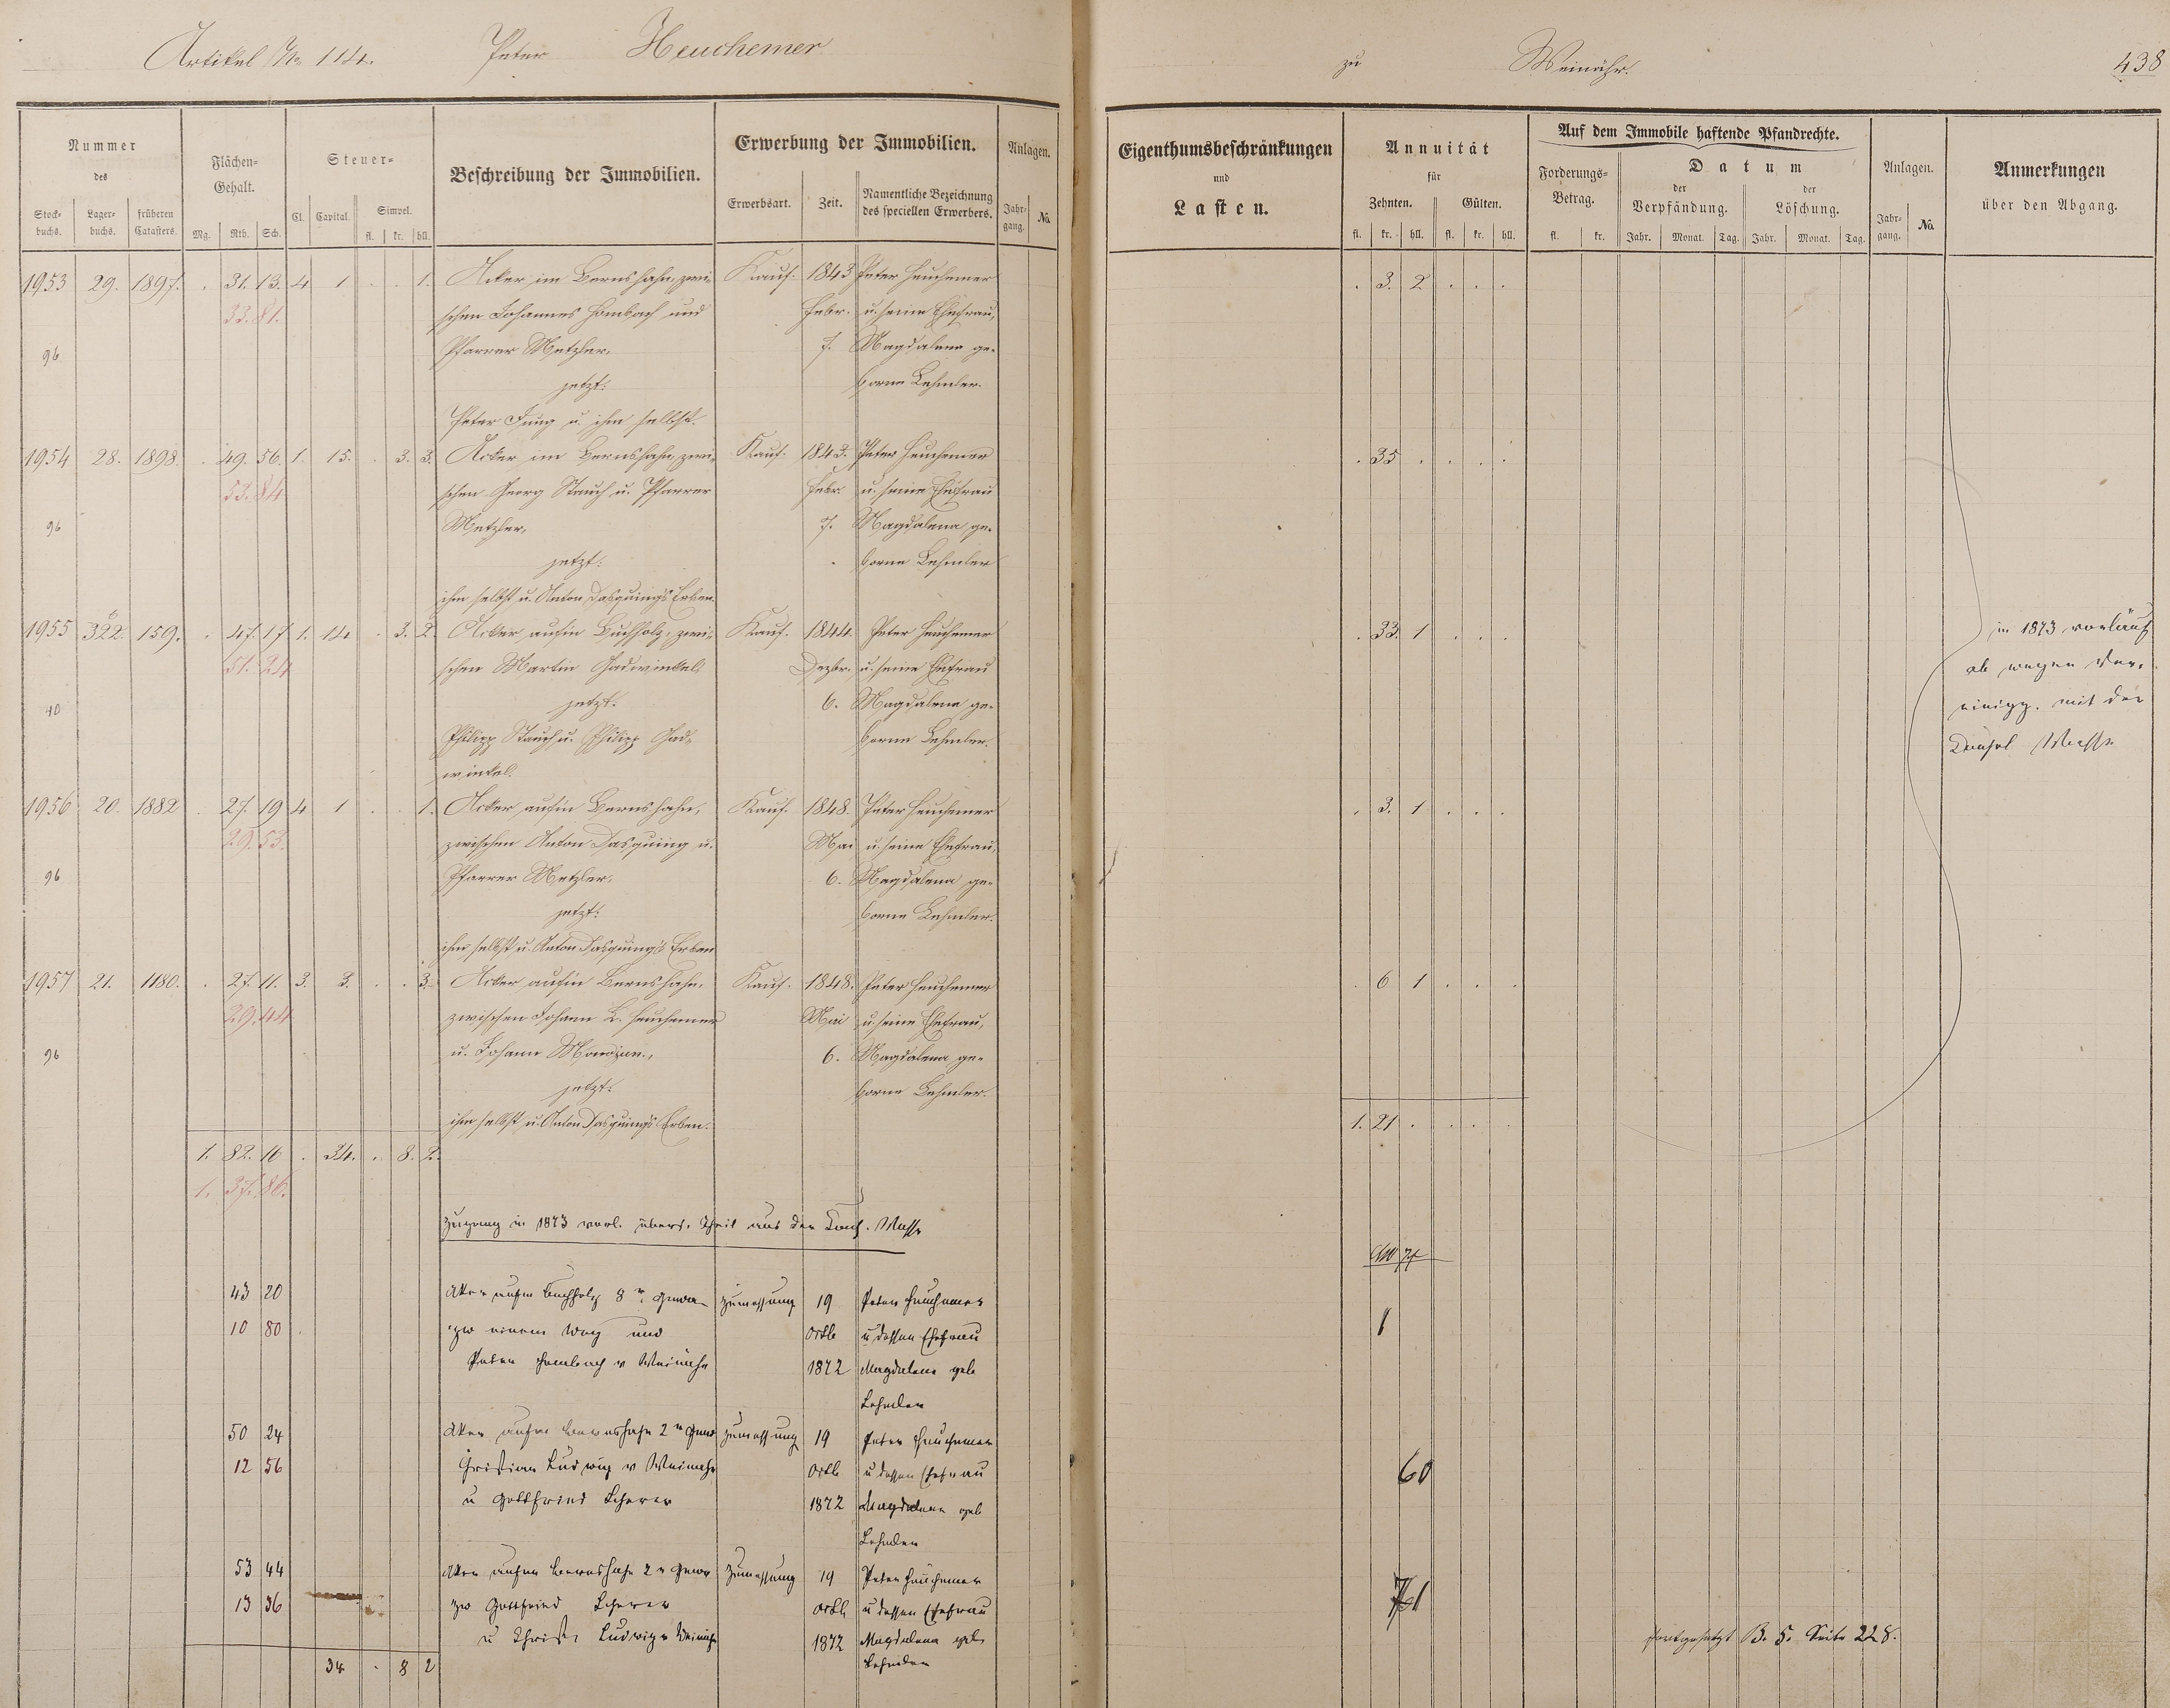 Artikel No. 114. Peter Heuchemer
zu Weinähr. 438
Nummer des
Stock-buchs. Lager-buchs. früheren Catasters.
Flächen-Gehalt.
Mg. Rth. Sch.
Steuer-
Cl. Capital. Simpel.
fl. kr. hll.
Beschreibung der Immobilien.
Erwerbung der Immobilien.
Erwerbsart. Zeit. Namentliche Bezeichnung des speciellen Erwerbers.
Anlagen.
Jahr-gang. No.
Eigenthumsbeschränkungen
und
Lasten.
Annuität
für
Zehnten. Gülten.
fl. kr. hll. fl. kr. hll.
Auf dem Immobile haftende Pfandrechte.
Forderungs-Betrag.
fl. kr.
Datum
der Verpfändung. der Löschung.
Jahr. Monat. Tag. Jahr. Monat. Tag.
Anlagen.
Jahr-gang. No.
Anmerkungen
über den Abgang.
1953 29. 1897. . 31. 13. 4 1 . . 1. Acker im Bernshahn, zwi- Kauf. 1843 Peter Heuchemer . 3. 2 . . .
33. 81. schen Johannes Hombach und Febr. u. seine Ehefrau,
96 Pfarrer Metzler, 7. Magdalena ge-
jetzt: borne Lehmler.
Peter Jung u. ihm selbst.
1954 28. 1898. . 49. 56. 1. 15. . 3. 3. Acker im Bernshahn, zwi- Kauf. 1843. Peter Heuchemer . 35 . . . .
53. 84 schen Georg Stauch u. Pfarrer Febr. u. seine Ehefrau
96 Metzler, 7. Magdalena ge-
jetzt: borne Lehmler
ihm selbst u. Anton Dasquings Erben.
1955 322 159. . 47. 17 1. 14 . 3. 2. Acker aufm Buchholz, zwi- Kauf. 1844. Peter Heuchemer . 33. 1 . . .
51. 24 schen Martin Gadwinkel Dezbr. u. seine Ehefrau
40 jetzt: 6. Magdalena ge-
Philipp Stauch u. Philipp Gad- borne Lehmler.
winkel.
in 1873 vorläuf
ab wegen Ver-
einigg. mit der
Consol Masse
1956 20. 1882 . 27. 19 4 1 . . 1. Acker aufm Bernshahn, Kauf. 1848. Peter Heuchemer . 3. 1 . . .
29. 53. zwischen Anton Dasquing u. Mai u. seine Ehefrau,
96 Pfarrer Metzler, 6. Magdalena ge-
jetzt: borne Lehmler.
ihm selbst u. Anton Dasquing's Erben
1957 21. 1180. . 27. 11. 3. 3. . . 3. Acker aufm Bernshahn, Kauf. 1848. Peter Heuchemer . 6 1 . . .
29. 44 zwischen Johann L. Heuchemer Mai u. seine Ehefrau,
96 u. Johann 6. Magdalena ge-
jetzt: borne Lehmler.
ihm selbst u. Anton Dasquings Erben. 1. 21 . . . .
1. 82. 16 . 34. . 8. 2.
1. 37. 86.
Zugang in 1873 vorl. übers. Theil aus der Cons. Masse
43 20 Aker aufm Buchholz 8r Gewa Zumessung 19 Peter Heuchemer
10 80 zw einem Weg und Octb u dessen Ehefrau 1
Peter Hombach v Weinähr 1872 Magdalena geb
Lehmler
50 24 Aker aufm Bernshahn 2r Gew Zumessung 19 Peter Heuchemer
12 56 Christian Ludwig v Weinähr Octb u dessen Ehefrau 60
u Gottfried Scherer 1872 Magdalena geb
Lehmler
53 44 Aker aufm Bernshahn 2r Gew Zumessung 19 Peter Heuchemer
13 36 zw Gottfried Scherer Octb u dessen Ehefrau
u Christ. Ludwig v Weinähr 1872 Magdalena geb.
34 . 8 2 Lehmler
fortgesetzt B. 5. Seite 228.